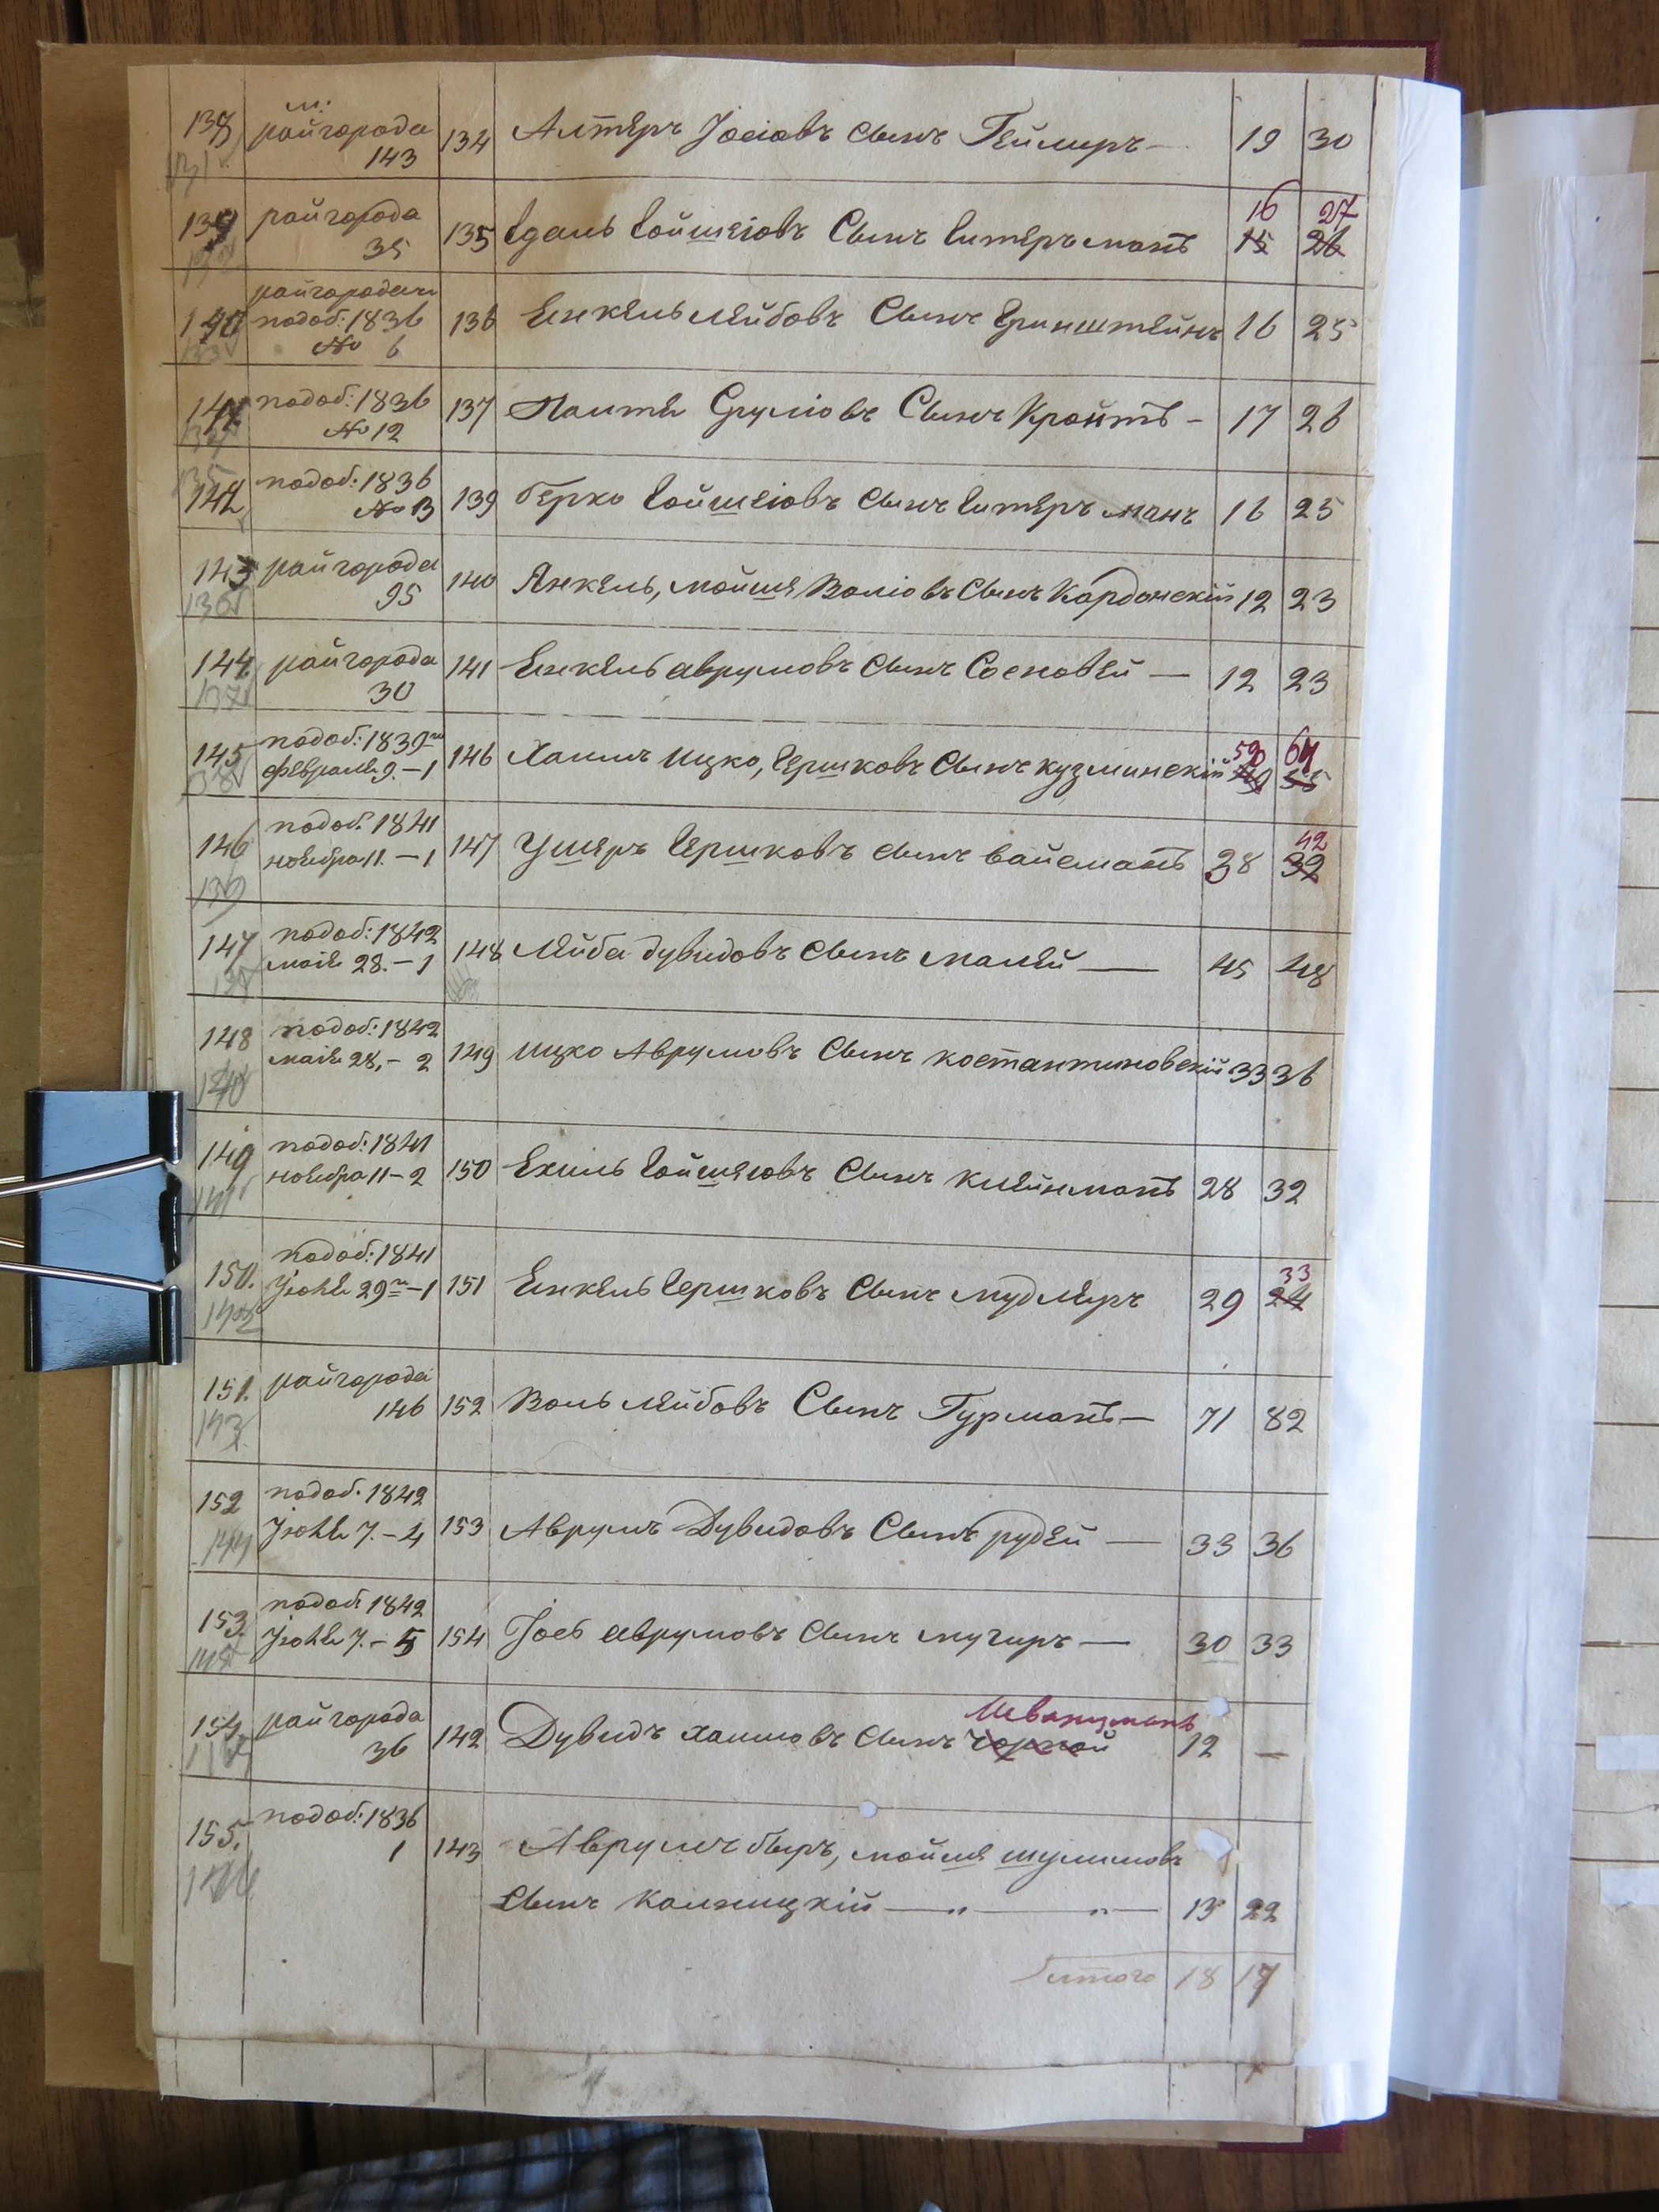 138 м: райгорода 134 Алтеръ Іосіовъ сынъ Геймиръ — 19 30
131 143
16 27
139 райгорода 135 Сдаль Гойшіовъ Сынъ Гитерьманъ 15 26
35
райгородеи
140 подоб: 1836 136 Енкель Лейбовъ Сынъ Гринштейнъ 16 25
133 № 6
141 подоб: 1836 137 Паитя Сруліовъ Сынъ Кройтъ — 17 26
№ 12
135
142 подоб: 1836 139 Берко Гойшіовъ Сынъ Гитеръ манъ 16 25
№ 13
143 райгорода 140 Янкель, мойшя Воліовъ Сынъ Кордонскій 12 23
136 95
144 райгорода 141 Енкель аврумовъ Сынъ Сосновей — 12 23
137 30
подоб: 1839го 59 64
145 февраля 9. – 1 146 Хаимъ ицко, Гершковъ Сынъ кузминскій 49 55
138
подоб: 1841 42
146 ноября 11. – 1 147 Ушеръ Гершковъ сынъ вайсманъ 38 32
139
147 подоб: 1842 148 Лейба дувидовъ Сынъ малей — 45 48
маія 28. – 1
148 подоб: 1842 149 ицко Аврумовъ Сынъ костантиновскій 33 36
140 маія 28, – 2
149 подоб: 1841 150 Ехиль Гойшяювъ Сынъ клейнманъ 28 32
141 ноября 11 – 2
подоб: 1841 33
150. Іюня 29го – 1 151 Енкель Гершковъ Сынъ мудлеръ 29 24
142
151. райгорода 152 Воль лейбовъ Сынъ Гурманъ — 71 82
143 146
152 подоб. 1842 153 Аврумъ Дувидовъ Сынъ рудей — 33 36
144 Іюня 7. – 4
153. подоб 1842 154 Іось аврумовъ Сынъ мучиръ — 30 33
145 Іюня 7. – 5
Шварцманъ
154 райгорода 142 Дувидъ хаимовъ Сынъ Чорной 12 —
36
155. подоб: 1836 143 Аврумъ быръ, мойшя шулимовъ
146 1
Сынъ Калницкій — " — " — 13 22
Итого 18 17